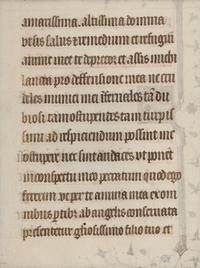 amatissima. altissima domina
vt sis salus et remedium et refugiū
anime mee te deprecor et assis michi
lancea pro deffensione mea ne cru
deles inimici mei īfernales tā du
brosi tam ostupentes tam turpis
simi ad respiciendum possint me
ostupere nec sint audaces vt ponāt
in cōspectu meo peccatum quod ego
feterum vt per te anima mea ex om
nibus ꝑtibꝫ ab angelis conseruata
presentetur gͥosissimo filio tuo et